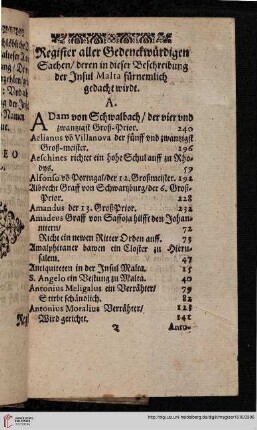 Register aller Gedenckwürdigen
Sachen/ deren in dieser Beschreibung
der Insul Malta fürnemlich
gedacht wirdt.
A.
ADam von Schwalbach/ der vier vnd
zwantzigst Groß-Prior. 240
Aelianus võ Villanova der fünff vnd zwantzigst
Groß-meister. 196
Aeschines richtet ein hohe Schul auff zu Rho-
dys. 59
Alfonso võ Portugal/ der 12. Großmeister. 192
Albrecht Graff von Schwartzburg/ der 6. Groß-
Prior. 228
Amandus der 13. Groß Prior. 232
Amadeus Graff von Saffoja hilfft den Johan-
nitern/ 72
Richt ein newen Ritter Orden auff. 73
Amalphitaner bawen ein Closter zu Hieru-
salem. 47
Antiquiteten in der Insul Malta. 15
S. Angelo ein Vestung zu Malta. 40
Antonius Meligalus ein Verrähter/ 79
Stirbt schändlich. 82
Antonius Moralius Verrähter/ 125
Wird gericht. 141
Anto-